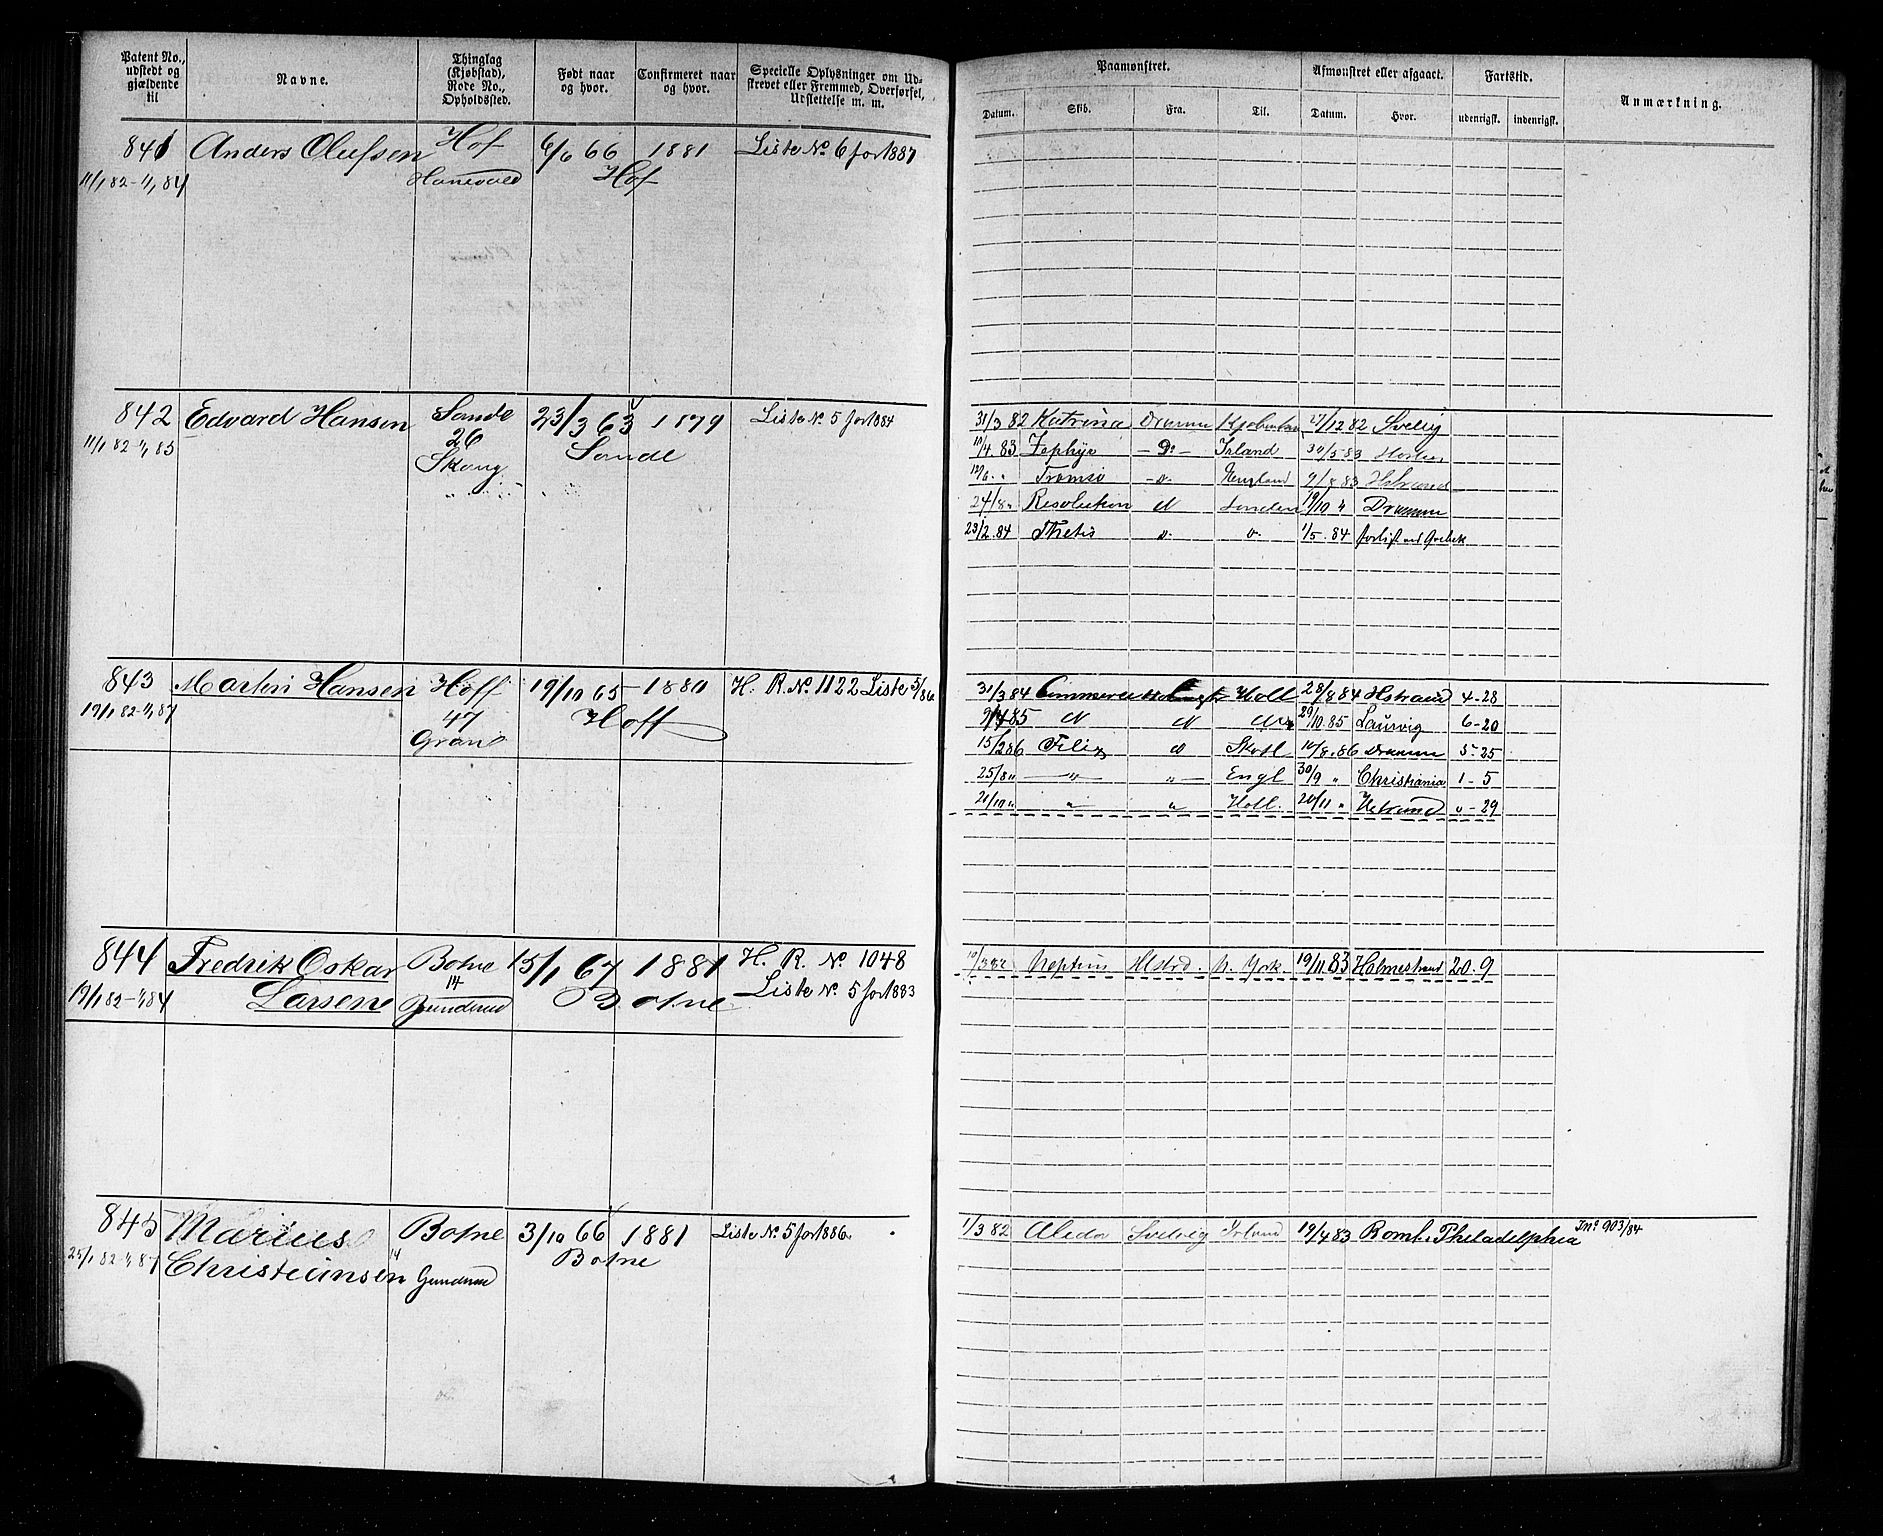 Patent No., udstedt og gjældende til
Navne.
Thinglag (Kjøbstad), Rode No., Opholdssted.
Født naar og hvor.
Confirmeret naar og hvor.
Specielle Oplysninger om Udskrevet eller Fremmed, Overførsel, Udslettelse m. m.
Paamønstret.
Afmønstret eller afgaaet.
Fartstid.
Anmærkning.
Datum. Skib. Fra. Til. Datum. Hvor. udenrigsk. indenrigsk.
841 Anders Olufsen Hof 6/6 66 1881 Liste No. 6 for 1887
11/1 82 - 1/1 84 Hof
842 Edvard Hansen Sande 23/3 63 1879 Liste No. 5 for 1884
11/1 82 - 1/1 85 26 Sande
Skoug
31/3 82 Katrina Dramm 27/12 82 Svelvig
10/4 83 Zephyr - Do - Irland 30/5 83 Horten
12/6 " Tromsø - o - England 9/8 83 Hstrand
24/8 " Resolution d London 19/10 " Dramm
23/2 84 Thetis o o 1/5 84 forlist ved
843 Martin Hansen Hoff 19/10 65 1880 H. R. No. 1122 Liste 5/86
19/1 82 - 1/1 87 47 Hoff
Grane
31/3 84 Holl 28/8 84 Hstrand 4-28
9/4 85 d d d 29/10 85 Laurvig 6-20
15/2 86 Felix d Skotl 10/8 86 Dramm 5-25
25/8 " " " Engl 30/9 " Christiania 1-5
21/10 " " " Holl. 20/11 " Hstrand " - 29
844 Fredrik Oskar Botne 15/1 67 1881 H. R. No. 1048
19/1 82 - 1/1 84 Larsen 14 Botne Liste No. 5 for 1883
Gunderud
10/3 82 Neptun Hstrd. N. York. 19/11 83 Holmestrand 20-9
845 Marius Botne 3/10 66 1881 Liste No. 5 for 1886.
25/1 82 - 1/1 87 Christiansen 14 Gunderud Botne
1/3 82 Aleda Svelvig Irland 19/4 83 Rømt. Philadelphia Jno 903/84